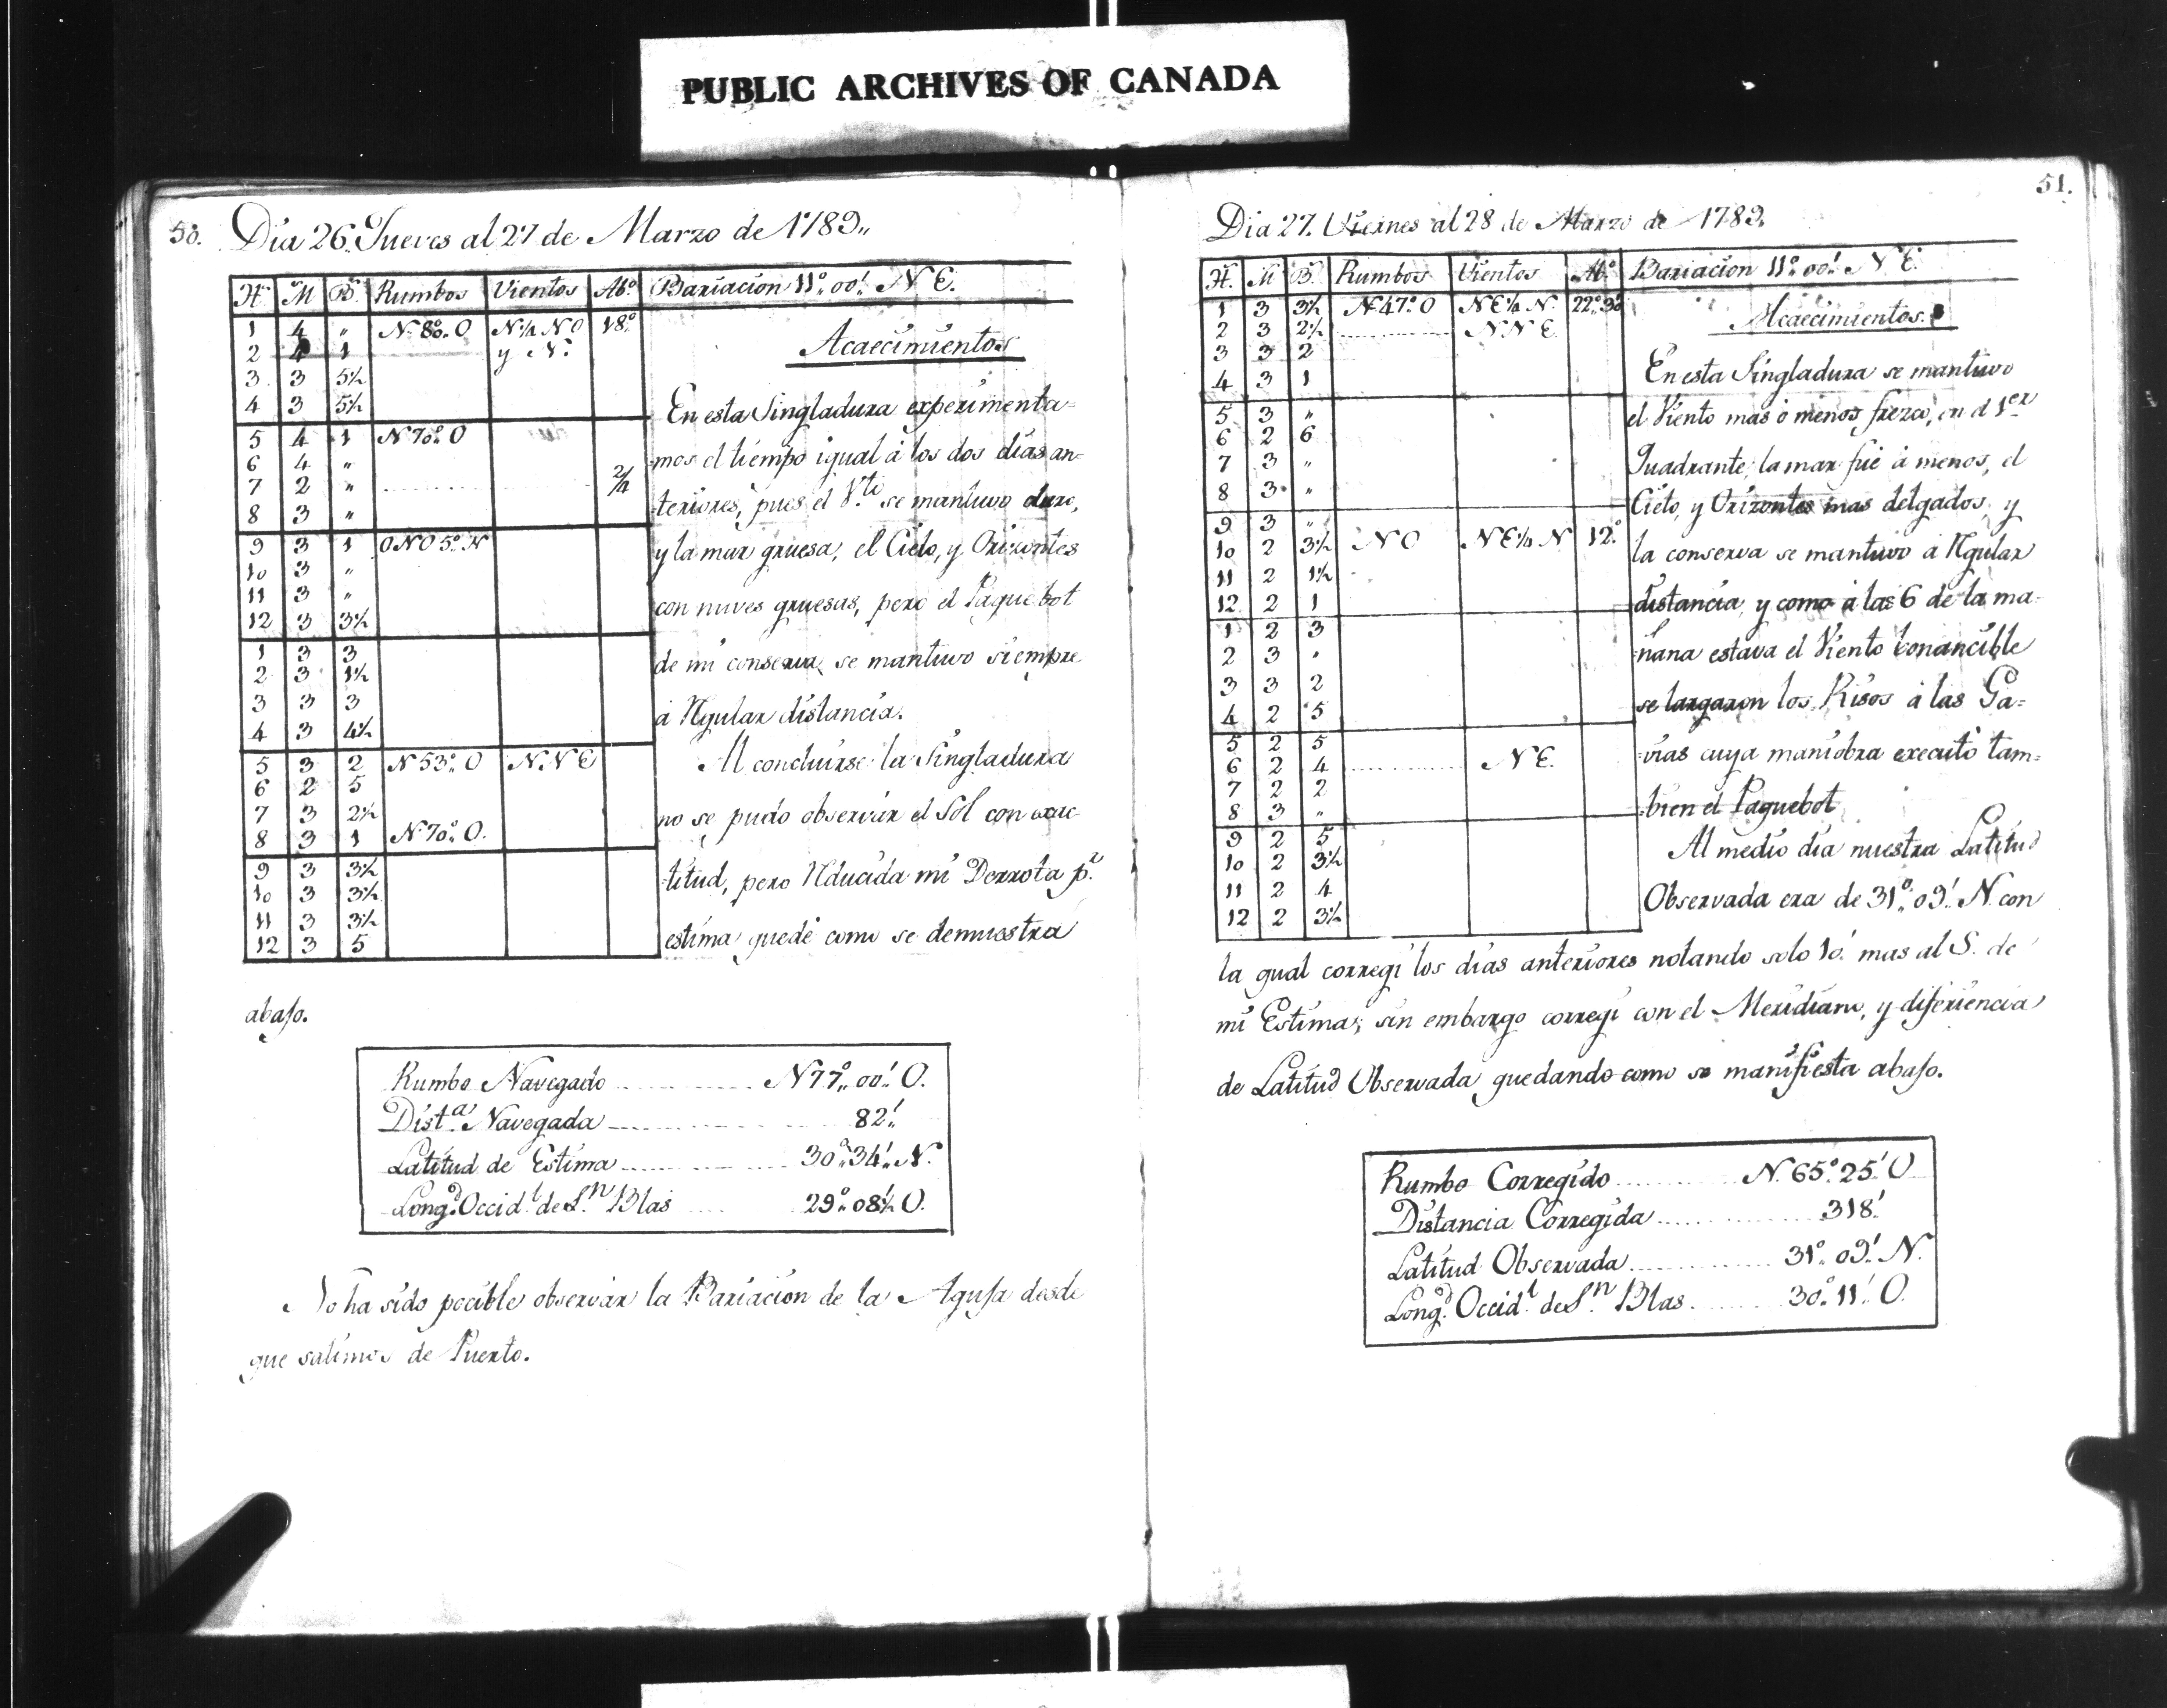 PUBLIC ARCHIVES OF CANADA
50.
Dia 26. Jueves al 27 de Marzo de 1789.,
H. M B. Rumbos Vientos Abº Bariacion 11º,, 00'. N E.
1 4 „ N. 80º. O N¼ NO 18º
2 4 1 y N.
3 3 5½
4 3 5½
5 4 1 N 70º. O
6 4 „
7 2 „
8 3 „
9 3 1 ONO 5º. N
10 3 „
11 3 „
12 3 3½
1 3 3
2 3 1½
3 3 3
4 3 4½
5 3 2 N 53º. O N. N E
6 2 5
7 3 2½
8 3 1 N 70º. O.
9 3 3½
10 3 3½
11 3 3½
12 3 5
Acaecimientos
En esta Singladura experimenta=
mos el tiempo igual á los dos dias an=
teriores, pues el V.te se mantuvo duro,
y la mar gruesa, el Cielo, y Orizontes
con nuves gruesas, pero el Paquebot
de mi conserva se mantuvo siempre
á Rgular distancia.
Al concluirse la Singladura
no se pudo observár el Sol con exac
titud, pero Rducida mi Derrota p.r
estima quedé como se demuestra
abajo.
Rumbo Navegado N77º,, 00'. O.
Dist.a Navegada 82'.
Latitud de Estima 30º,, 34'. N.
Long.d Occid.l de S.n Blas 29º,, 08'½ O.
No ha sido pocible observár la Bariacion de la Aguja desde
que salimos de Puerto.
51.
Dia 27. Viernes al 28 de Marzo de 1789.
H. M B. Rumbos Vientos Abº Bariacion 11º,, 00'. N E.
1 3 3½ N 47º. O N E¼ N. 22º. 30
2 3 2½ N N E
3 3 2
4 3 1
5 3 „
6 2 6
7 3 „
8 3 „
9 3 „
10 2 3½ N O N E¼ N 12º.
11 2 1½
12 2 1
1 2 3
2 3 „
3 3 2
4 2 5
5 2 5
6 2 4 N E.
7 2 2
8 3 „
9 2 5
10 2 3½
11 2 4
12 2 3½
Acaecimientos.
En esta Singladura se mantuvo
el Viento mas ó menos frezco, en el 1.er
Quadrante, la mar fué á menos, el
Cielo, y Orizontes mas delgados, y
la conserva se mantuvo á Rgular
distancia, y como á las 6 de la ma=
ñana estava el Viento bonancible
se largaron los Risos á las Ga=
vias cuya maniobra executó tam=
bien el Paquebot
Al medio dia nuestra Latitud
Observada era de 31º,, 09'. N. con
la qual corregí los dias anteriores notando solo 10'. mas al S. de
mi Estima; sin embargo corregí con el Meridiano, y diferiencia
de Latitud Observada quedando como se manifiesta abajo.
Rumbo Corregido N. 65º 25'. O
Distancia Corregida 318'.
Latitud Observada 31º,, 09'. N.
Long.d Occid.l de S.n Blas 30º,, 11'. O.